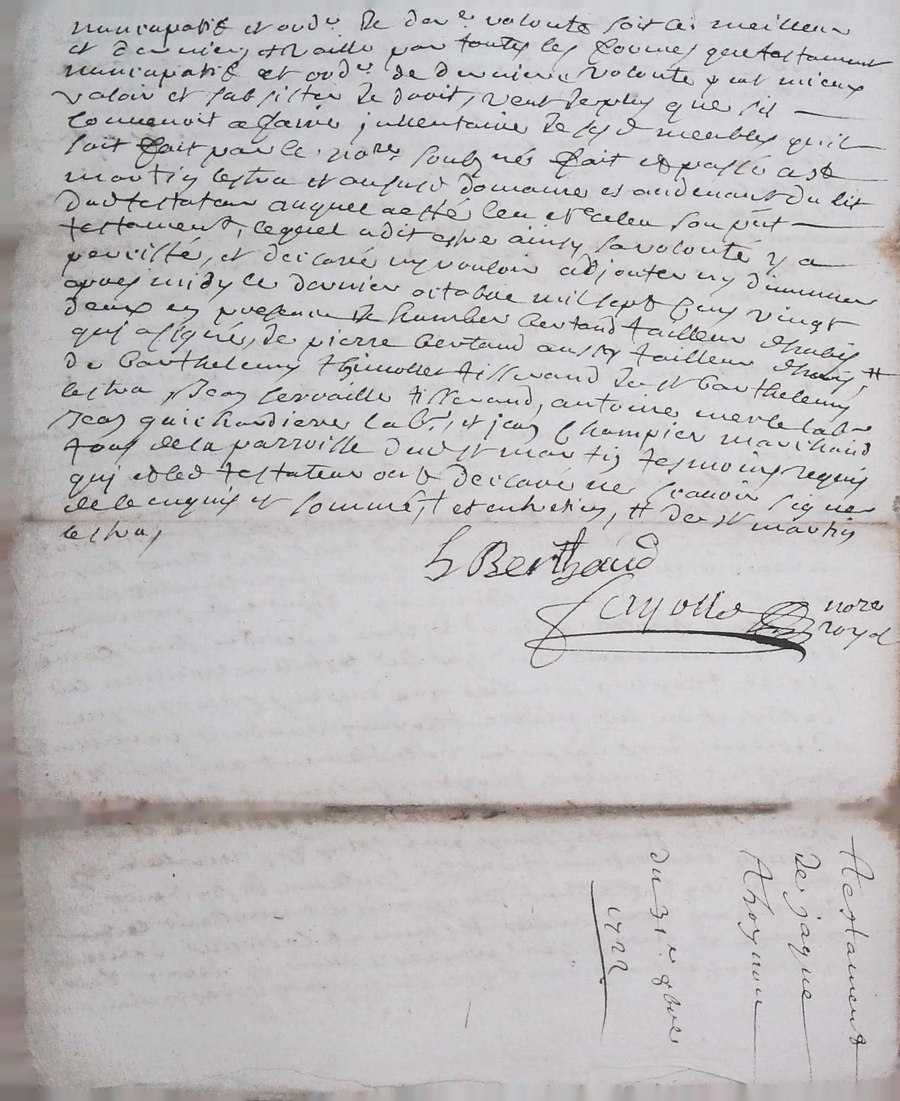 nuncupatif et ordre de dere volonté soit le meilleur
et dernier, et vaille par toutes les formes que testament
nuncupatif et ordre de derniere volonté peut mieux
valoir et subsister de droit, veut de plus que sil
convenoit a faire inventaire de ses meubles quil
soit fait par le nore soubzné fait et passé a st
martin lestra et au domaine et au devant du lit
dud testateur auquel a esté leu et releu son pnt
testament, lequel a dit estre ainsy sa volonté y a
percisté, et declaré ny vouloir adjouter ny diminuer
apres midy le dernier octobre mil sept cens vingt
deux en presence de humber bertaud tailleur dhabis
qui a signé, de pierre bertaud aussy tailleur dhabis, #
de barthelemy thimollet tisserand de st barthelemy
lestra, Jean servaille tisserand, antoine merle labr
Jean guichardiere labr, et jean champier marchand
tous de la parroisse dud st martin tesmoins requis
qui et led testateur ont declaré ne scavoir signer
de ce enquis et sommé, + et autretien, # de st martin
lestra,
h Berthaud
nore
royal
testament
de jaque
thoynon
du 31e 8bre
1722